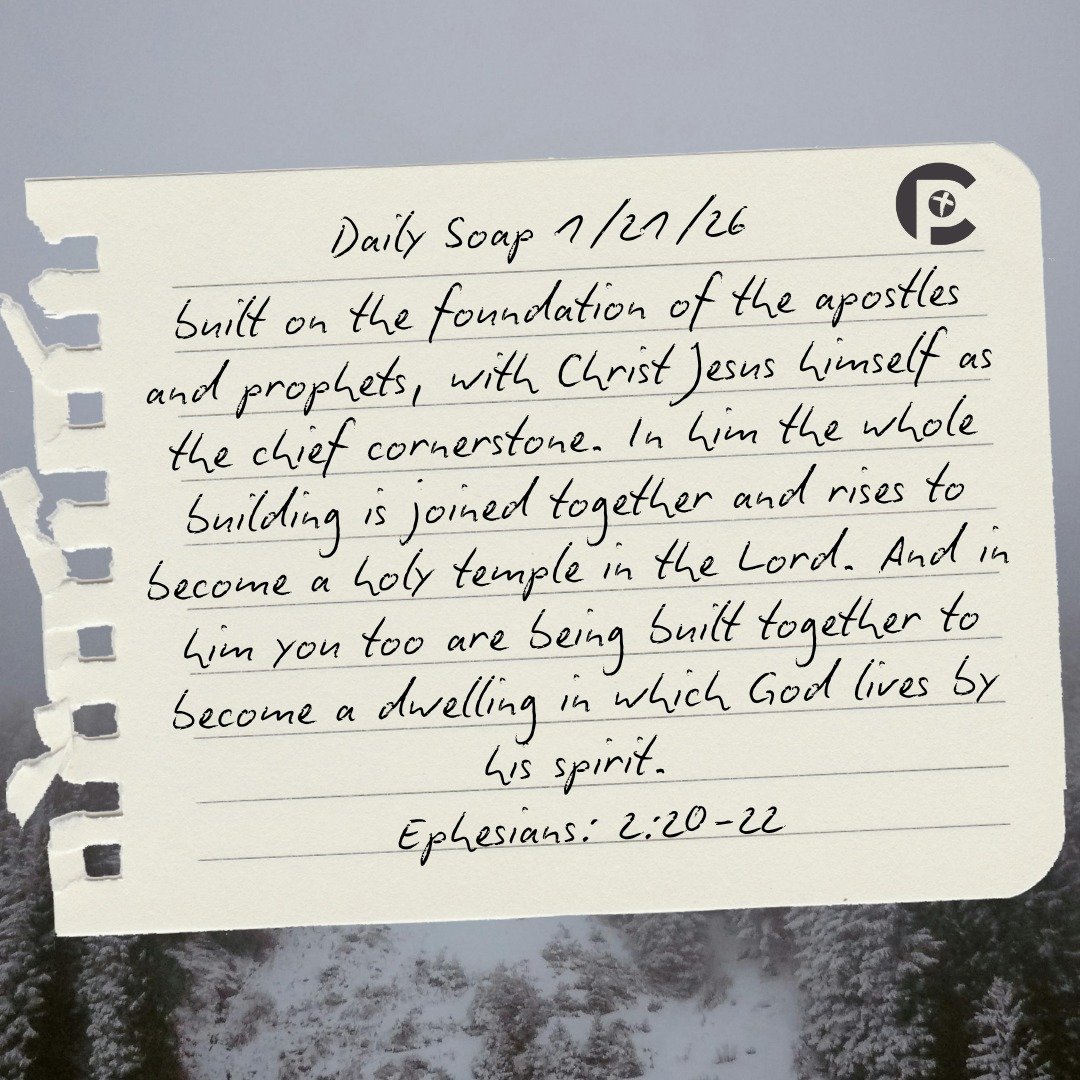 Daily Soap 1/21/26
built on the foundation of the apostles
and prophets, with Christ Jesus himself as
the chief cornerstone. In him the whole
building is joined together and rises to
become a holy temple in the Lord. And in
him you too are being built together to
become a dwelling in which God lives by
his spirit.
Ephesians: 2:20-22